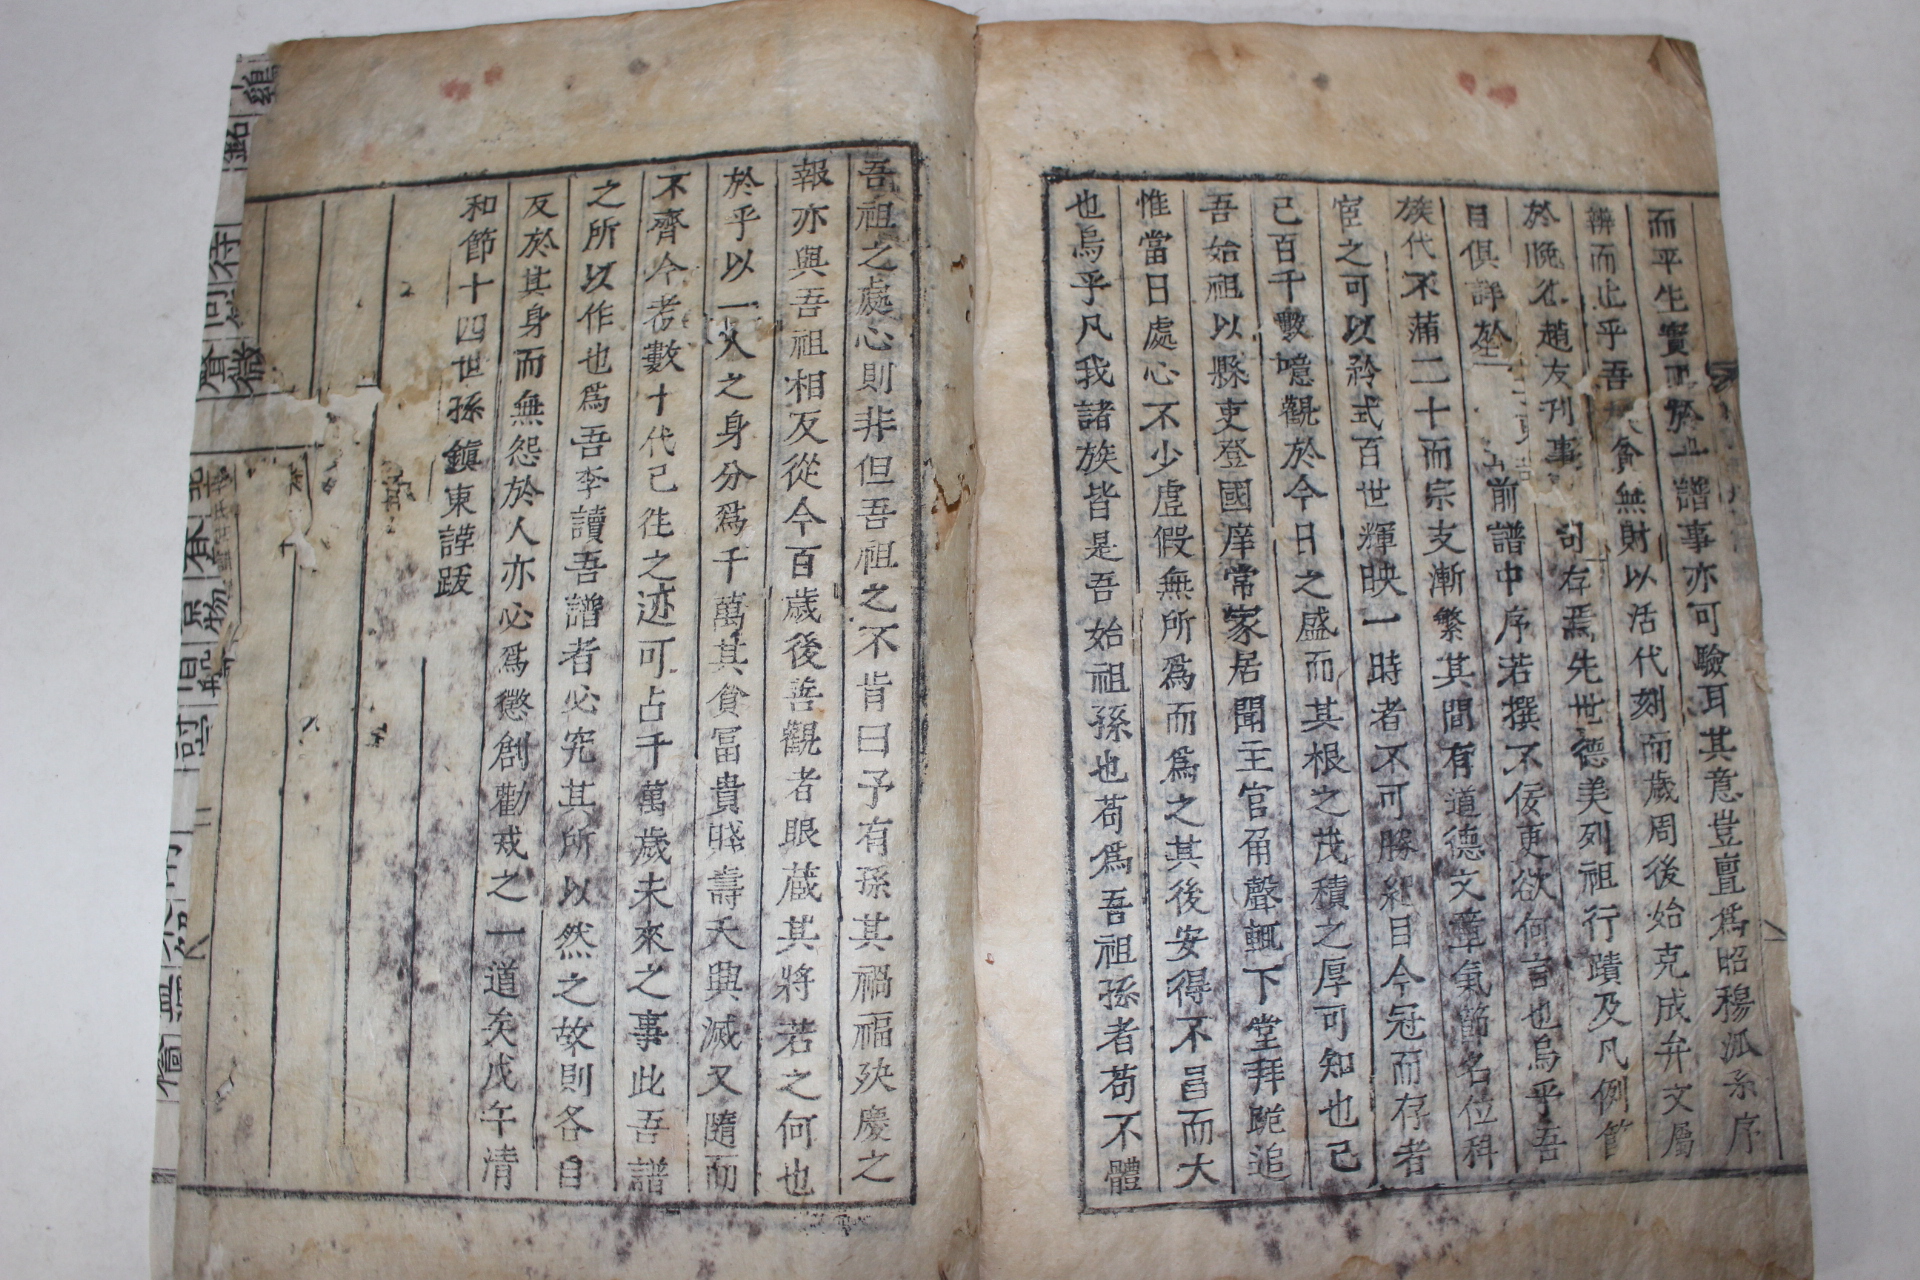 而平生實於譜事亦可驗耳其意豈亶爲昭穆派系序
辨而止乎吾貧無財以活代刻而歲周後始克成弁文屬
於晩老趙友刋事存焉先世德美列祖行蹟及凡例管
目俱詳於前譜中序若撰不佞更欲何言也烏乎吾
族代不蒲二十而宗支漸繁其間有道德文章氣節名位科
宦之可以矜式百世輝映一時者不可勝紀目今冠而存者
已百千數噫觀於今日之盛而其根之茂積之厚可知也已
吾始祖以縣吏登國庠常家居聞主官甬聲輒下堂拜跪追
惟當日處心不少虛假無所爲而爲之其後安得不昌而大
也烏乎凡我諸族皆是吾始祖孫也苟爲吾祖孫者苟不體
吾祖之處心則非但吾祖之不肯曰予有孫其禍福殃慶之
報亦與吾祖相反從今百歲後善觀者眼葳其將若之何也
於乎以一人之身分爲千萬其貧富貴賤壽夭興滅又隨而
不齊今考數十代已徃之迹可占千萬歲未來之事此吾譜
之所以作也爲吾李讀吾譜者必究其所以然之故則各自
反於其身而無怨於人亦必爲懲創勸戒之一道矣戊午清
和節十四世孫鎭東謹跋